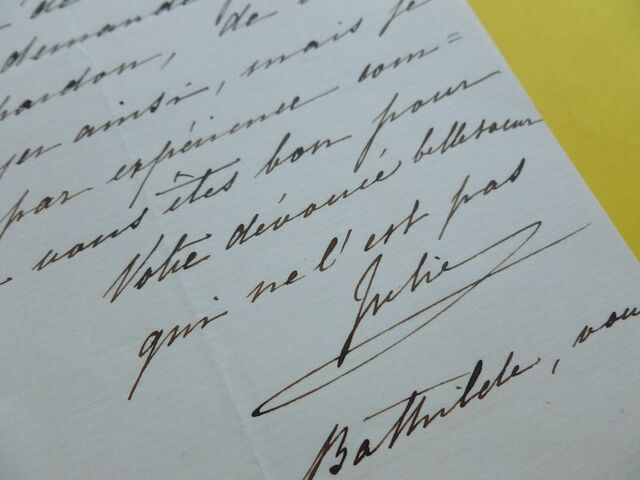 de
demande
pardon, de
ainsi, mais je
par expérience com=
vous êtes bon pour
Votre dévouée bellesoeur
qui ne l'est pas
Julie
Bathilde, vou